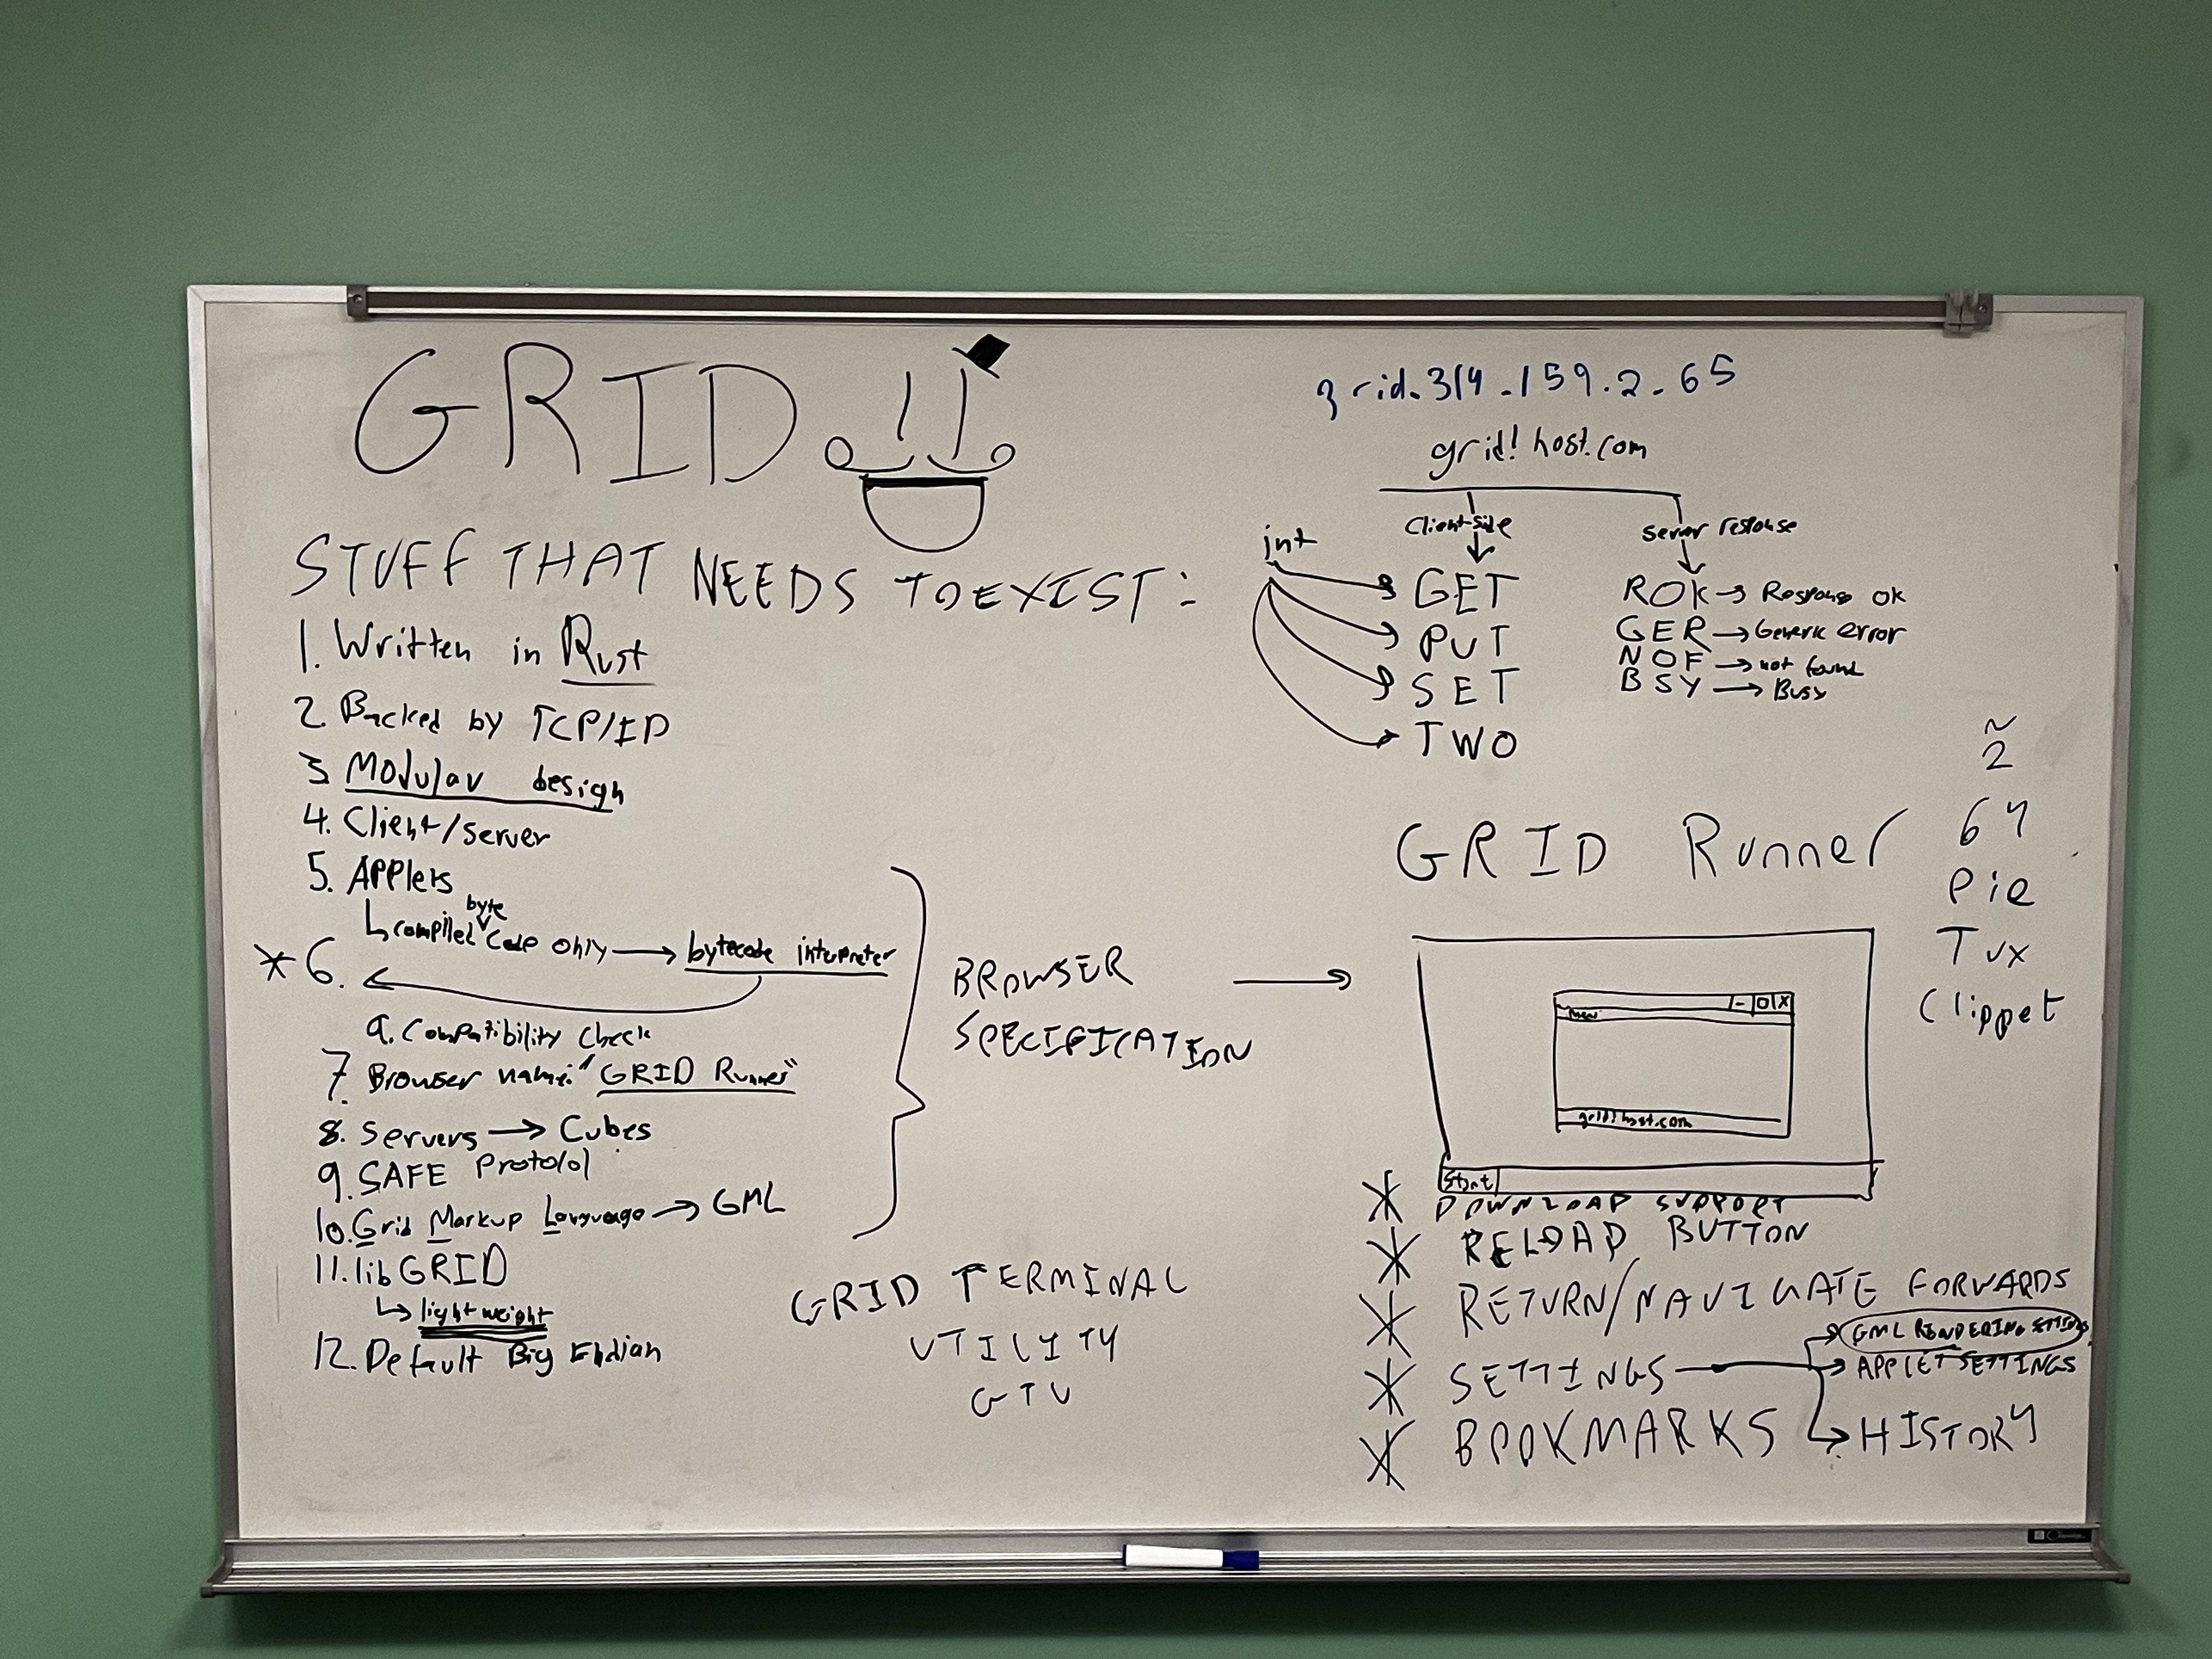 GRID
STUFF THAT NEEDS TO EXIST:
1. Written in Rust
2. Backed by TCP/IP
3. Modular design
4. Client/server
5. Applets
↳ compiled byte code only → bytecode interpreter
* 6.
a. Compatibility check
7. Browser name: "GRID Runner"
8. Servers → Cubes
9. SAFE Protolol
10. Grid Markup Language → GML
11. libGRID
↳ lightweight
12. Default Big Endian
BROWSER
SPECIFICATION
GRID TERMINAL
UTILITY
GTU
grid.314.159.2.65
grid!host.com
Client-side
int
GET
PUT
SET
TWO
Server response
ROK → Response ok
GER → Generic error
NOF → not found
BSY → Busy
GRID Runner
- O X
grid!host.com
Start
* DOWNLOAD SUPPORT
* RELOAD BUTTON
* RETURN/NAVIGATE FORWARDS
* SETTINGS → GML RENDERING SETTINGS
→ APPLET SETTINGS
→ HISTORY
* BOOKMARKS
~
2
64
Pie
Tux
Clippet